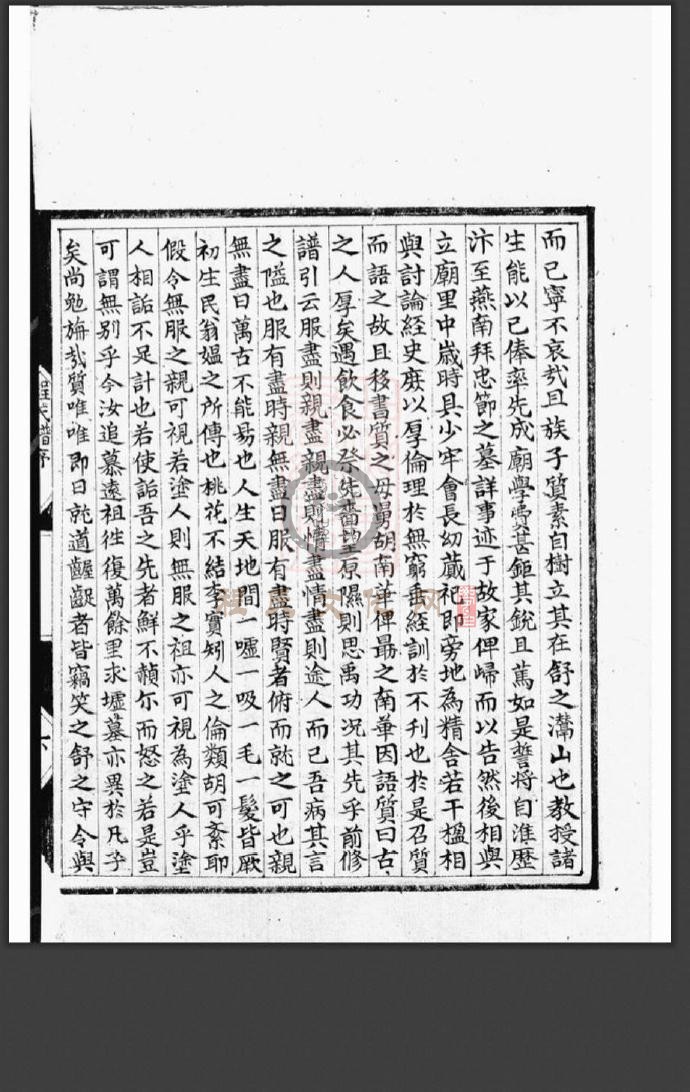 而已寧不哀哉且族子質素自樹立其在舒之灊山也教授諸
生能以己俸率先成廟學費甚鉅其銳且篤如是誓將自淮歷
汴至燕南拜忠節之墓詳事迹于故家俾歸而以告然後相與
立廟里中歲時具少牢會長幼蕆祀即旁地為精舍若干楹相
與討論經史庶以厚倫理於無窮垂經訓於不刋也於是召質
而語之故且移書質之母舅胡南華俾勗之南華因語質曰古
之人厚矣遇飲食必祭先嗇望原隰則思禹功况其先乎前修
譜引云服盡則親盡親盡則情盡情盡則途人而已吾病其言
之隘也服有盡時親無盡日服有盡時賢者俯而就之可也親
無盡日萬古不能易也人生天地間一噓一吸一毛一髮皆厥
初生民翁媼之所傳也桃花不結李實矧人之倫類胡可紊耶
假令無服之親可視若塗人則無服之祖亦可視為塗人乎塗
人相詬不足計也若使詬吾之先者鮮不赬尓而怒之若是豈
可謂無别乎今汝追慕遠祖徃復萬餘里求墟墓亦異於凡子
矣尚勉旃哉質唯唯即日就道齷齪者皆竊笑之舒之守令與
程氏譜序
六